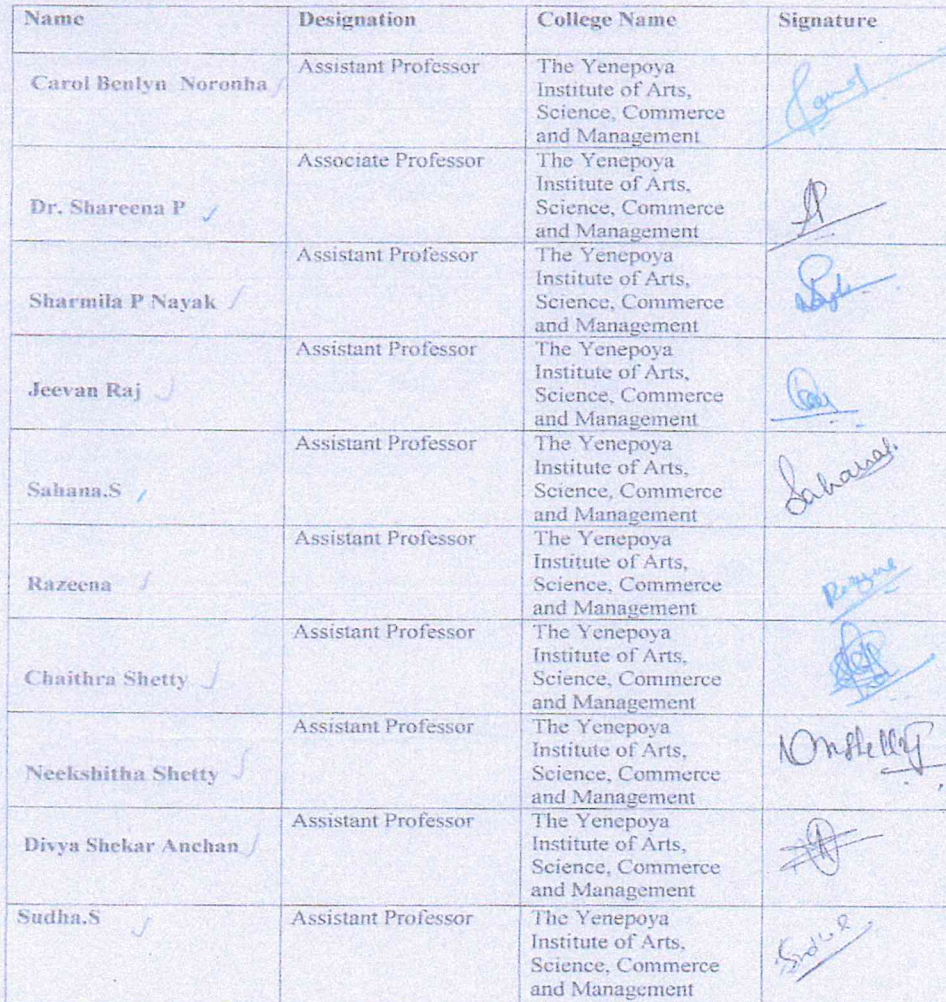 Name Designation College Name Signature
Carol Benlyn Noronha
Assistant Professor
The Yenepoya
Institute of Arts,
Science, Commerce
and Management
Dr. Shareena P
Associate Professor
The Yenepoya
Institute of Arts,
Science, Commerce
and Management
Sharmila P Nayak
Assistant Professor
The Yenepoya
Institute of Arts,
Science, Commerce
and Management
Jeevan Raj
Assistant Professor
The Yenepoya
Institute of Arts,
Science, Commerce
and Management
Sahana.S
Assistant Professor
The Yenepoya
Institute of Arts,
Science, Commerce
and Management
Razeena
Assistant Professor
The Yenepoya
Institute of Arts,
Science, Commerce
and Management
Chaithra Shetty
Assistant Professor
The Yenepoya
Institute of Arts,
Science, Commerce
and Management
Neekshitha Shetty
Assistant Professor
The Yenepoya
Institute of Arts,
Science, Commerce
and Management
Divya Shekar Anchan
Assistant Professor
The Yenepoya
Institute of Arts,
Science, Commerce
and Management
Sudha.S
Assistant Professor
The Yenepoya
Institute of Arts,
Science, Commerce
and Management